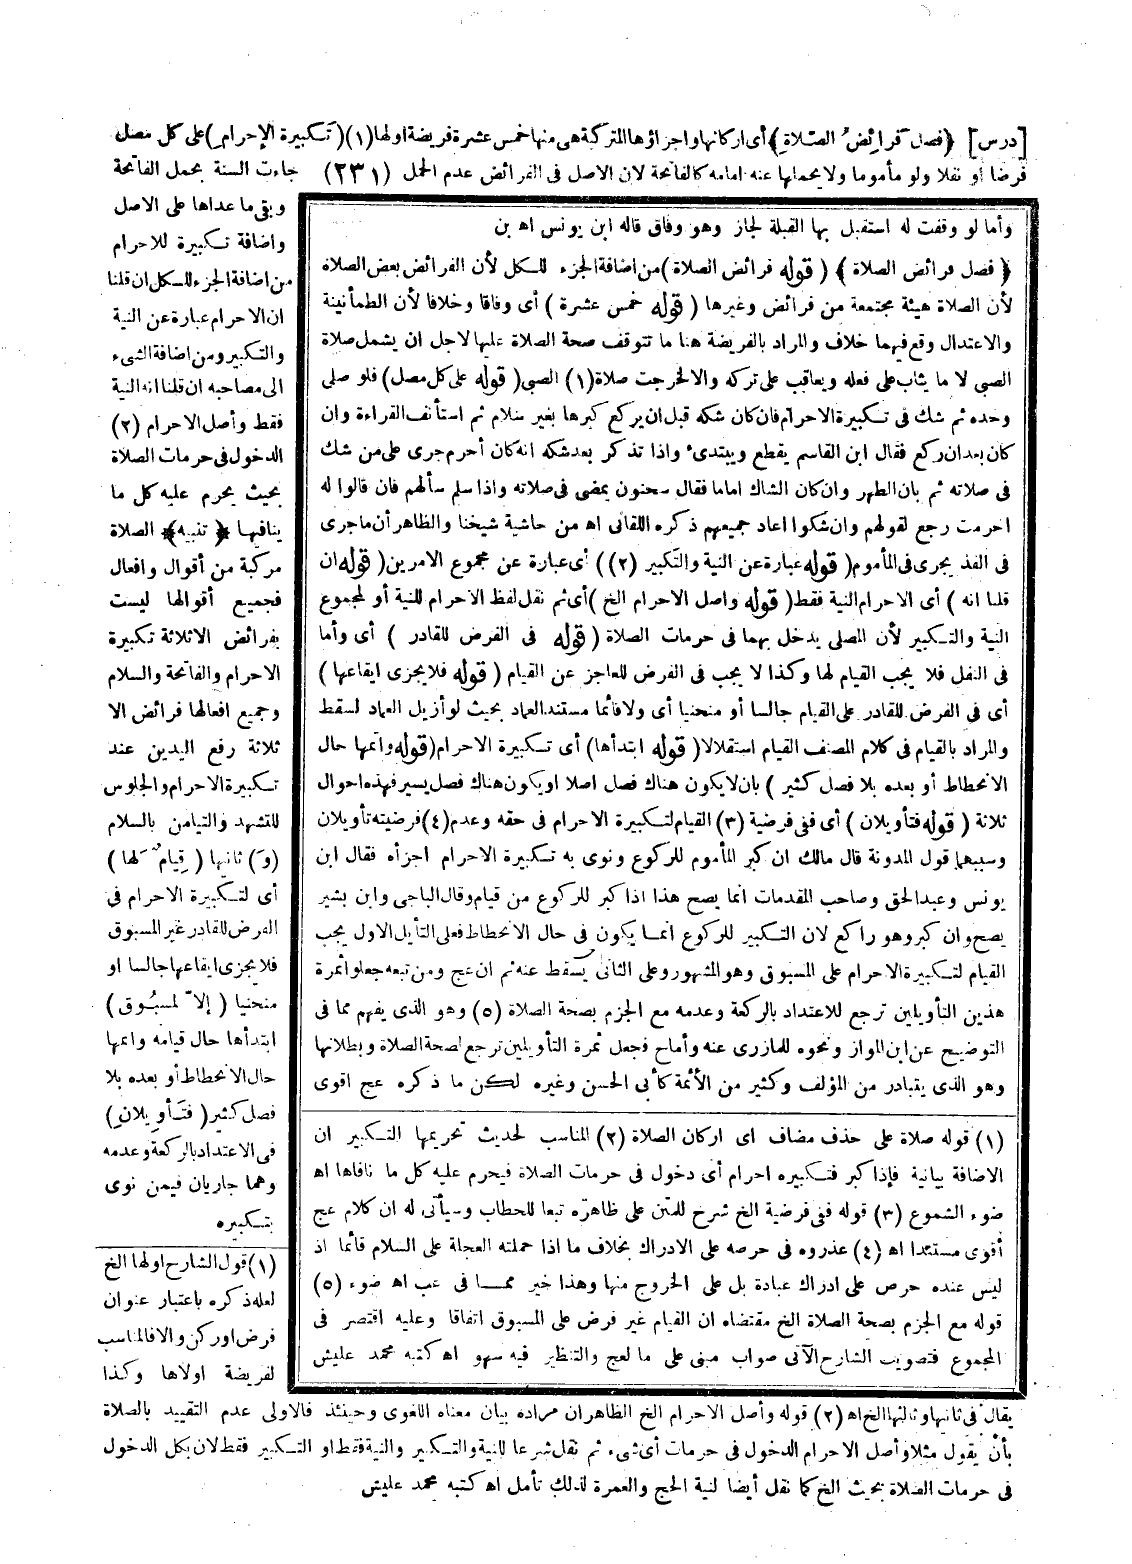 [درس] ﴿فصل فرائِضُ الصّلاةِ﴾ أى اركانها واجزاؤها المتركبة هى منها خمس عشرة فريضة اولها (١) (تَكبيرة الإحرامِ) على كل مصل
فرضا او نفلا ولو مأموما ولا يحملها عنه امامه كالفاتحة لان الاصل فى الفرائض عدم الحمل (٢٣١) جاءت السنة بحمل الفاتحة
وبقى ما عداها على الاصل
واضافة تكبيرة للاحرام
من اضافة الجزء للكل ان قلنا
ان الاحرام عبارة عن النية
والتكبير ومن اضافة الشىء
الى مصاحبه ان قلنا انه النية
فقط وأصل الاحرام (٢)
الدخول فى حرمات الصلاة
بحيث يحرم عليه كل ما
ينافيها ﴿تنبيه﴾ الصلاة
مركبة من أقوال وافعال
فجميع أقوالها ليست
بفرائض الا ثلاثة تكبيرة
الاحرام والفاتحة والسلام
وجميع افعالها فرائض الا
ثلاثة رفع اليدين عند
تكبيرة الاحرام والجلوس
للتشهد والتيامن بالسلام
(وَ) ثانيها (قِيامٌ لَها)
أى لتكبيرة الاحرام فى
الفرض للقادر غير المسبوق
فلا يجزى ايقاعها جالسا او
منحنيا (إلاّ لمسبُوق)
ابتدأها حال قيامه واتمها
حال الانحطاط أو بعده بلا
فصل كثير (فتَأوِيلانِ)
فى الاعتداد بالركعة وعدمه
وهما جاريان فيمن نوى
بتكبيره
وأما لو وقفت له استقبل بها القبلة لجاز وهو وفاق قاله ابن يونس اه بن
﴿فصل فرائض الصلاة﴾ (قوله فرائض الصلاة) من اضافة الجزء للكل لأن الفرائض بعض الصلاة
لأن الصلاة هيئة مجتمعة من فرائض وغيرها (قوله خمس عشرة) أى وفاقا وخلافا لأن الطمأنينة
والاعتدال وقع فيهما خلاف والمراد بالفريضة هنا ما تتوقف صحة الصلاة عليها لاجل ان يشمل صلاة
الصبى لا ما يثاب على فعله ويعاقب على تركه والا لخرجت صلاة (١) الصبى (قوله على كل مصل) فلو صلى
وحده ثم شك فى تكبيرة الاحرام فان كان شكه قبل ان يركع كبرها بغير سلام ثم استأنف القراءة وان
كان بعد ان ركع فقال ابن القاسم يقطع ويبتدىء واذا تذكر بعد شكه انه كان أحرم جرى على من شك
فى صلاته ثم بان الطهر وان كان الشاك اماما فقال سحنون يمضى فى صلاته واذا سلم سألهم فان قالوا له
احرمت رجع لقولهم وان شكوا اعاد جميعهم ذكره اللقانى اه من حاشية شيخنا والظاهر أن ما جرى
فى الفذ يجرى فى المأموم (قوله عبارة عن النية والتكبير (٢)) أى عبارة عن مجموع الامرين (قوله ان
قلنا انه) أى الاحرام النية فقط (قوله واصل الاحرام الخ) أى ثم نقل لفظ الاحرام للنية أو لمجموع
النية والتكبير لأن المصلى يدخل بهما فى حرمات الصلاة (قوله فى الفرض للقادر) أى وأما
فى النفل فلا يجب القيام لها وكذا لا يجب فى الفرض للعاجز عن القيام (قوله فلا يجزى ايقاعها)
أى فى الفرض للقادر على القيام جالسا أو منحنيا أى ولا قائما مستند العماد بحيث لو أزيل العماد لسقط
والمراد بالقيام فى كلام المصنف القيام استقلالا (قوله ابتدأها) أى تكبيرة الاحرام (قوله واتمها حال
الانحطاط أو بعده بلا فصل كثير) بان لا يكون هناك فصل اصلا او يكون هناك فصل يسير فهذه احوال
ثلاثة (قوله فتأويلان) أى ففى فرضية (٣) القيام لتكبيرة الاحرام فى حقه وعدم (٤) فرضيته تأويلان
وسببهما قول المدونة قال مالك ان كبر المأموم للركوع ونوى به تكبيرة الاحرام اجزأه فقال ابن
يونس وعبد الحق وصاحب المقدمات انما يصح هذا اذا كبر للركوع من قيام وقال الباجى وابن بشير
يصح وان كبر وهو راكع لان التكبير للركوع انما يكون فى حال الانحطاط فعلى التأيل الاول يجب
القيام لتكبيرة الاحرام على المسبوق وهو المشهور وعلى الثانى يسقط عنه ثم ان عج ومن تبعه جعلوا ثمرة
هذين التأويلين ترجع للاعتداد بالركعة وعدمه مع الجزم بصحة الصلاة (٥) وهو الذى يفهم مما فى
التوضيح عن ابن المواز ونحوه للمازرى عنه وأما ح فجعل ثمرة التأويلين ترجع لصحة الصلاة وبطلانها
وهو الذى يتبادر من المؤلف وكثير من الأئمة كأبى الحسن وغيره لكن ما ذكره عج اقوى
(١) قوله صلاة على حذف مضاف اى اركان الصلاة (٢) المناسب لحديث تحريمها التكبير ان
الاضافة بيانية فإذا كبر فتكبيره احرام أى دخول فى حرمات الصلاة فيحرم عليه كل ما نافاها اه
ضوء الشموع (٣) قوله ففى فرضية الخ شرح للمتن على ظاهره تبعا للحطاب وسيأتى له ان كلام عج
أقوى مستندا اه (٤) عذروه فى حرصه على الادراك بخلاف ما اذا حملته العجلة على السلام قائما اذ
ليس عنده حرص على ادراك عبادة بل على الخروج منها وهذا خير ممـا فى عب اه ضوء (٥)
قوله مع الجزم بصحة الصلاة الخ مقتضاه ان القيام غير فرض على المسبوق اتفاقا وعليه اقتصر فى
المجموع فتصويب الشارح الآتى صواب مبنى على ما لعج والتنظير فيه سهو اه كتبه محمد عليش
(١) قول الشارح اولها الخ
لعله ذكره باعتبار عنوان
فرض او ركن والا فالمناسب
لفريضة اولاها وكذا
يقال فى ثانيها وثالثها الخ اه (٢) قوله وأصل الاحرام الخ الظاهر ان مراده بيان معناه اللغوى وحينئذ فالاولى عدم التقييد بالصلاة
بأنْ يقول مثلا وأصل الاحرام الدخول فى حرمات أى شىء ثم نقل شرعا للنية والتكبير والنية فقط او التكبير فقط لان بكل الدخول
فى حرمات الصلاة بحيث الخ كما نقل أيضا لنية الحج والعمرة لذلك تأمل اه كتبه محمد عليش